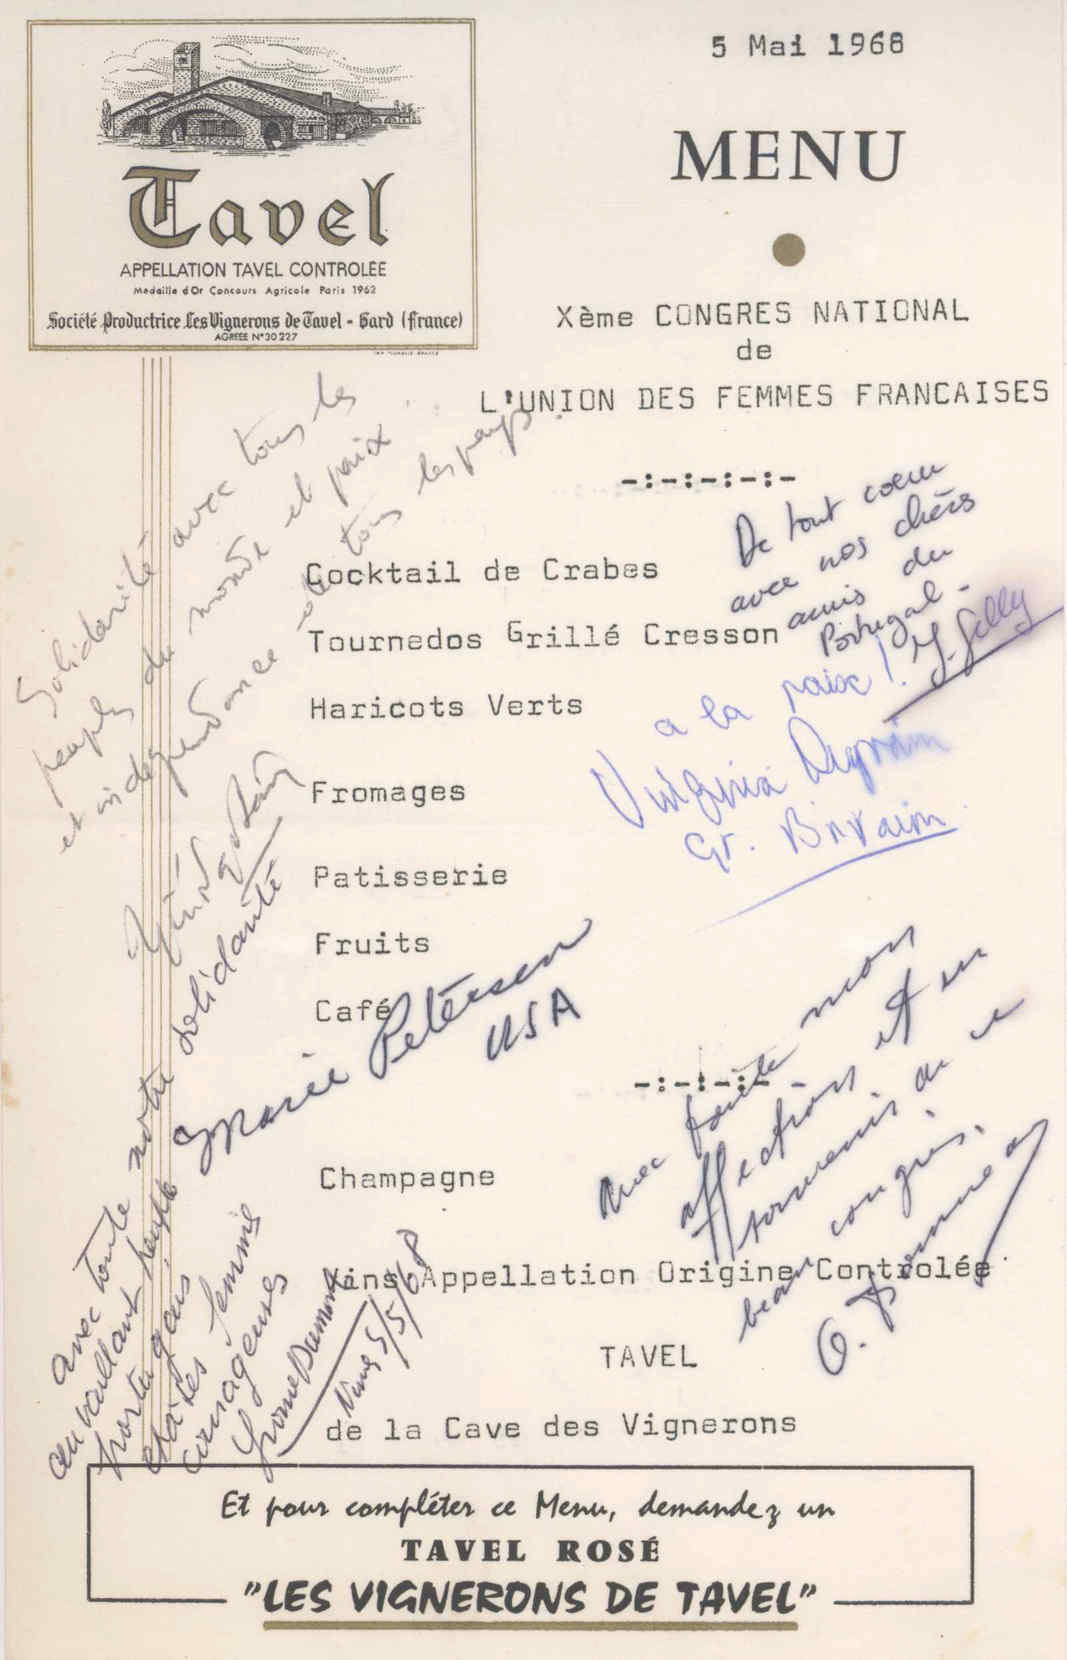 5 Mai 1968
MENU
Tavel
APPELLATION TAVEL CONTROLÉE
Medaille d'Or Concours Agricole Paris 1962
Société Productrice Les Vignerons de Tavel - Gard (France)
AGREEE N°30227
Xème CONGRES NATIONAL
de
L'UNION DES FEMMES FRANCAISES
-:-:-:-:-
Cocktail de Crabes
Tournedos Grillé Cresson
Haricots Verts
Fromages
Patisserie
Fruits
Café
-:-:-:-
Champagne
Vins Appellation Origine Controlée
TAVEL
de la Cave des Vignerons
Solidarité avec tous les
peuples du monde et paix
et indépendance de tous les pays.
De tout coeur
avec nos chers
amis du
Portugal -
Y. Gilly
a la paix!
Virginia
Gr. Britain
Marie Petersen
USA
avec toute notre solidarité
au vaillant peuple
portugais
et à ses femmes
courageuses
Yvonne Dumont
Nimes 5/5/68
Avec toute mon
affection et un
souvenir de ce
beau congrès.
Et pour compléter ce Menu, demandez un
TAVEL ROSÉ
"LES VIGNERONS DE TAVEL"